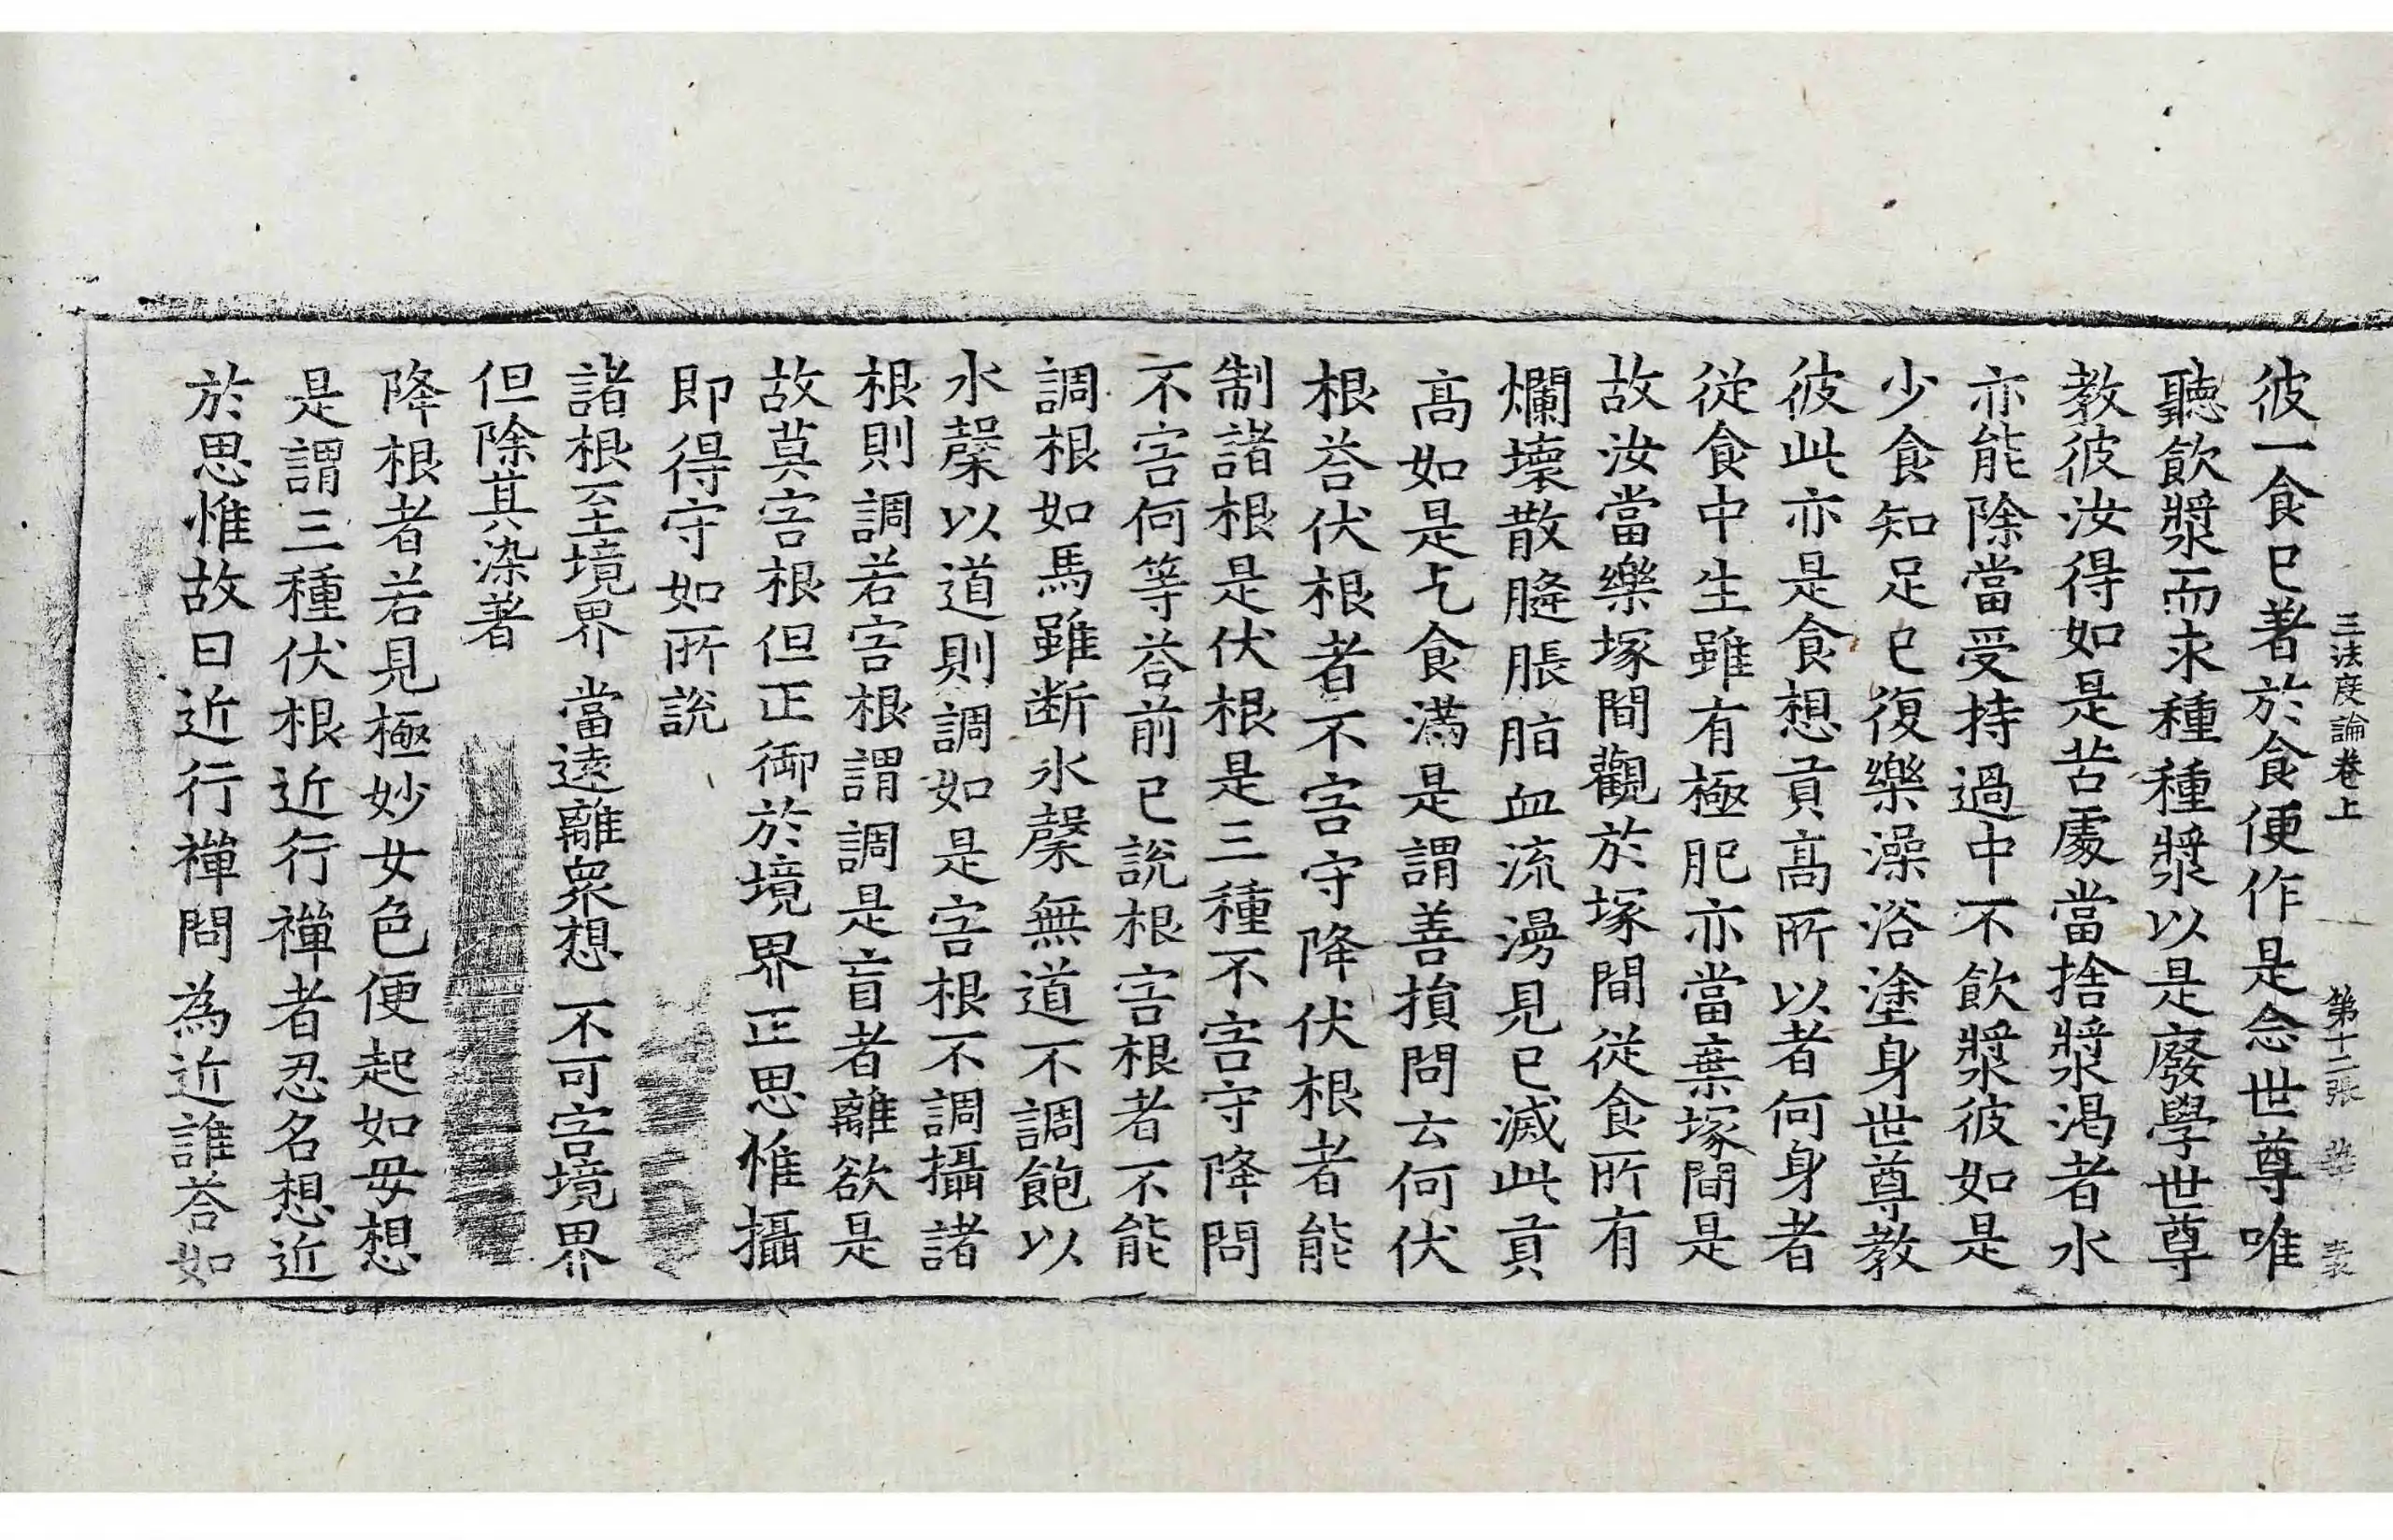 三法度論卷上 第十二張 表
彼一食已著於食便作是念世尊唯
聽飲漿而求種種漿以是廢學世尊
教彼汝得如是苦處當捨漿渴者水
亦能除當受持過中不飲漿彼如是
少食知足已復樂澡浴塗身世尊教
彼此亦是食想貢高所以者何身者
從食中生雖有極肥亦當棄塚間是
故汝當樂塚間觀於塚間從食所有
爛壞散膖脹脂血流漫見已滅此貢
高如是乞食滿是謂善損問云何伏
根荅伏根者不害守降伏根者能
制諸根是伏根是三種不害守降問
不害何等荅前已說根害根者不能
調根如馬雖断水䅽無道不調飽以
水䅽以道則調如是害根不調攝諸
根則調若害根謂調是盲者離欲是
故莫害根但正御於境界正思惟攝
即得守如所說
諸根至境界 當遠離衆想 不可害境界
但除其染著
降根者若見極妙女色便起如母想
是謂三種伏根近行禪者忍名想近
於思惟故曰近行禪問為近誰荅如